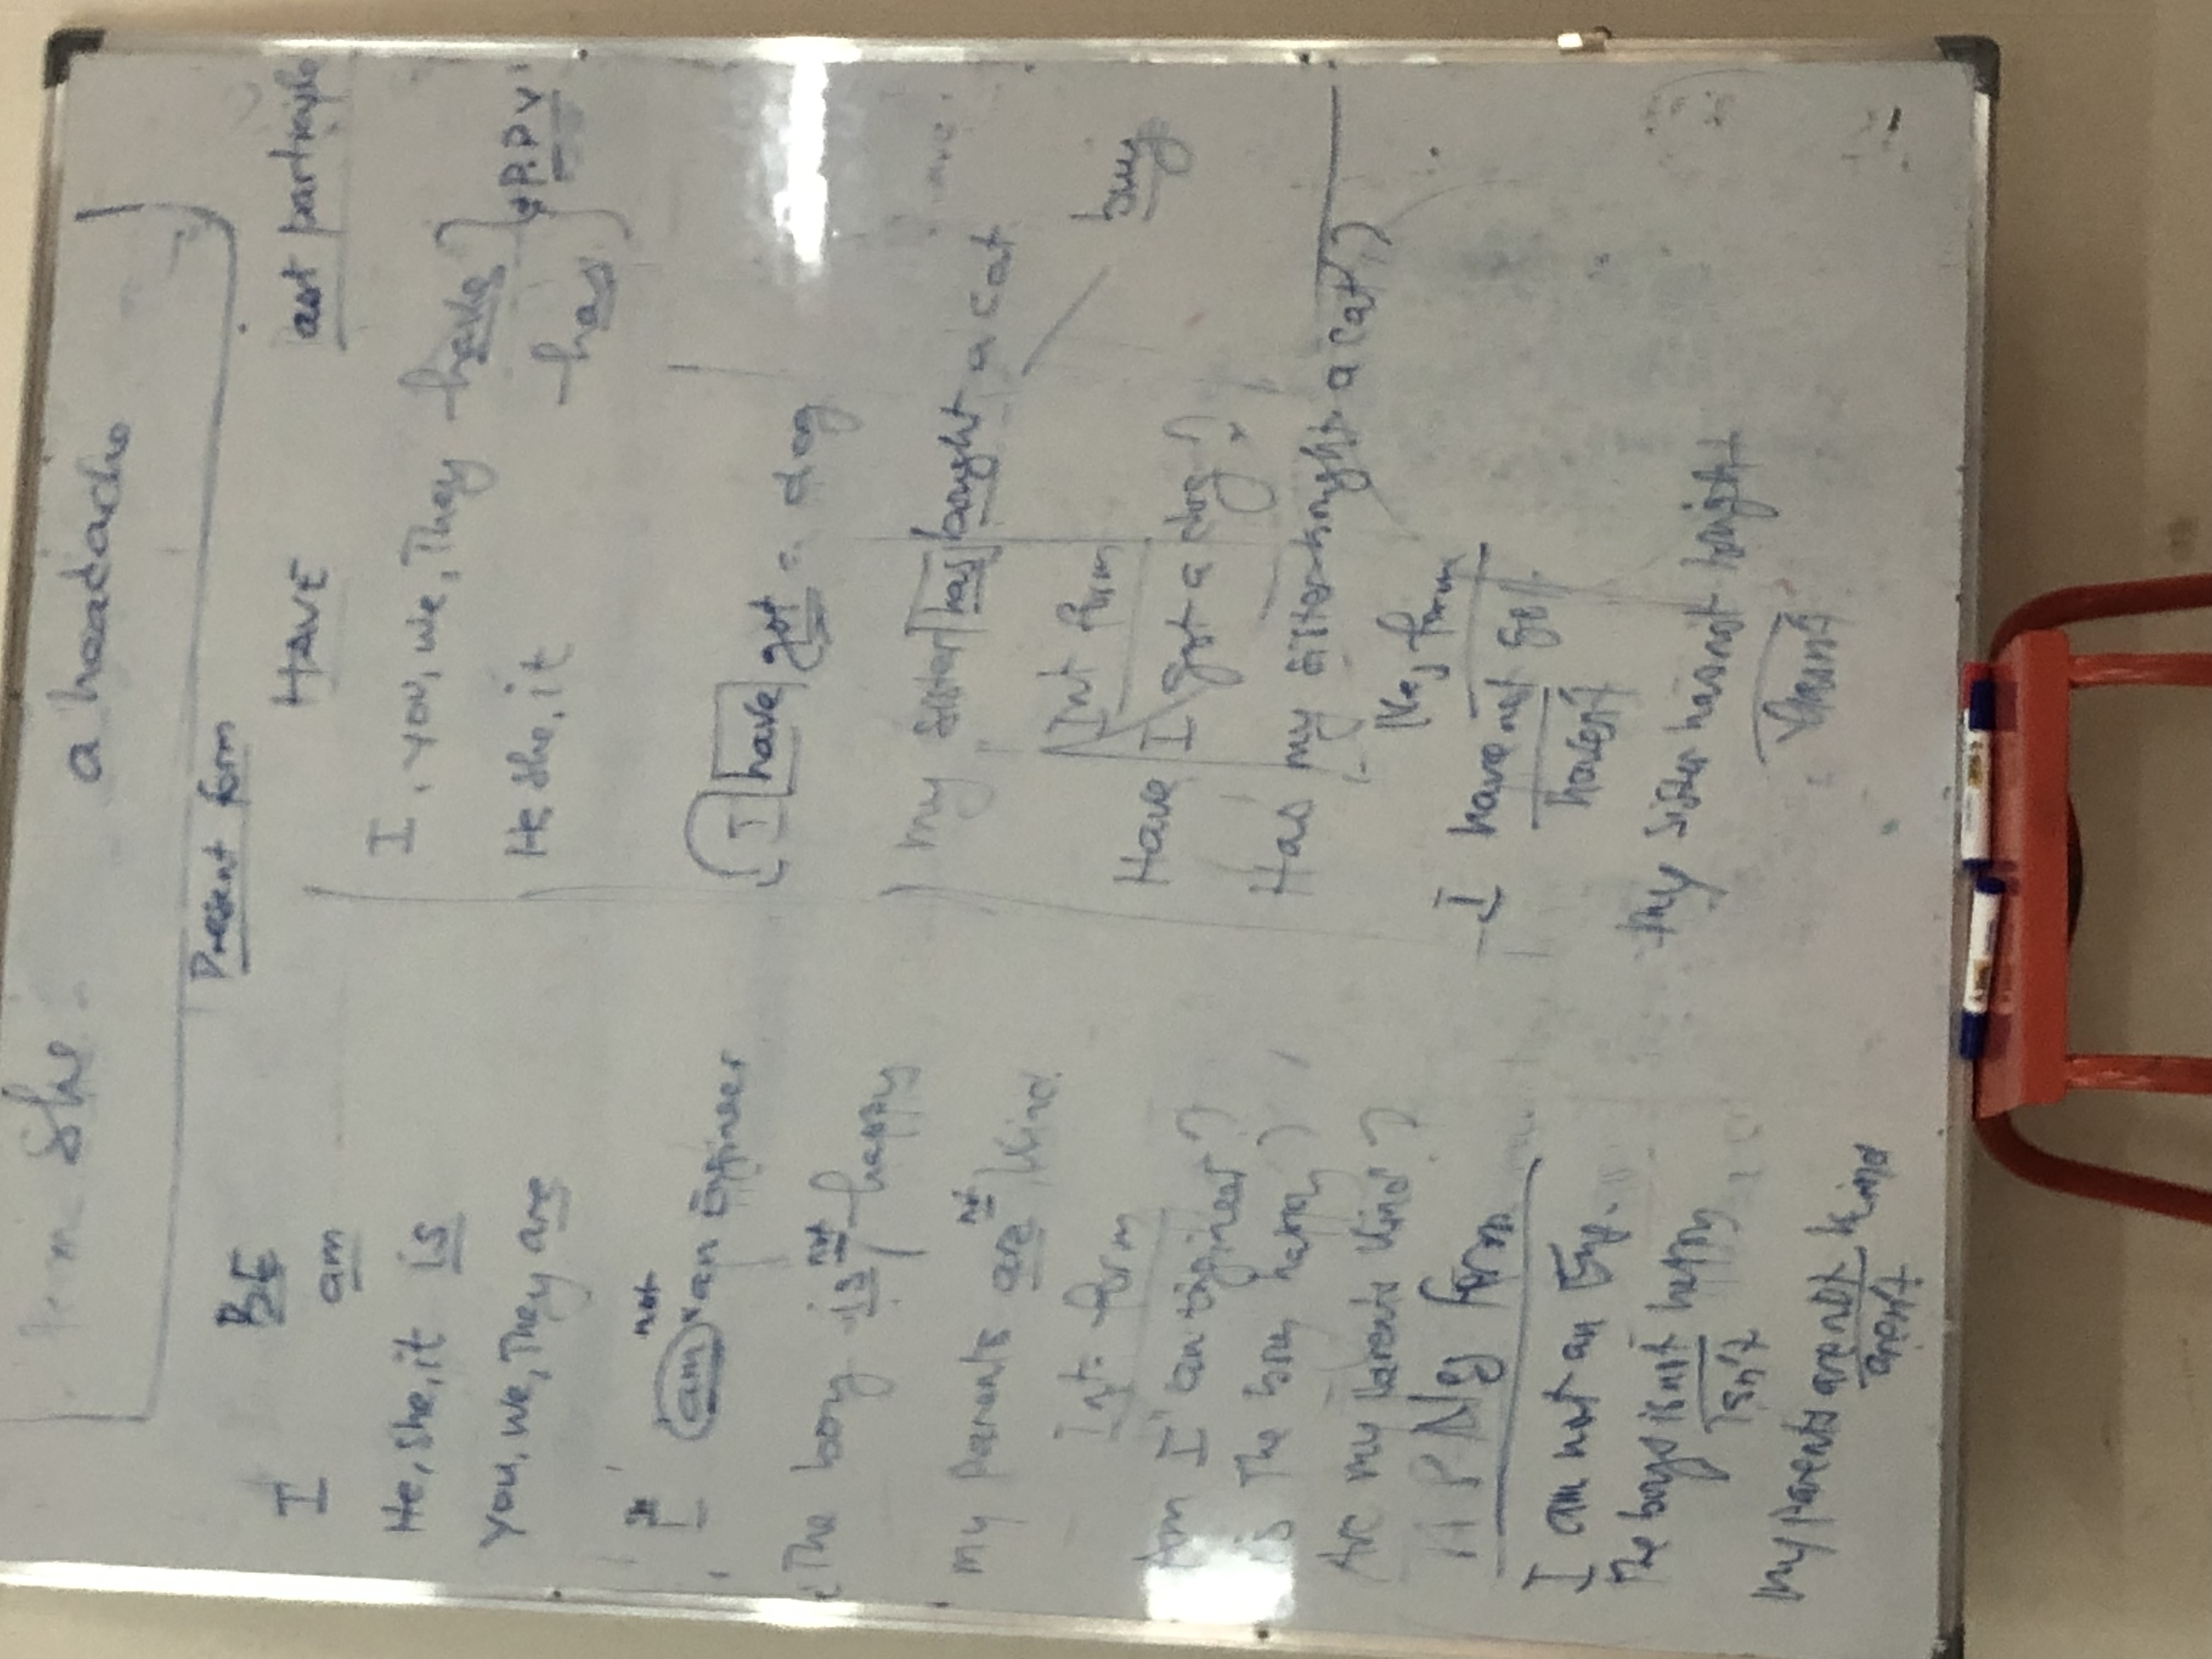 She
a headache
Present form
BE
I am
He, she, it is
You, we, They are
not
I am an Engineer
The boy is not happy
not
My parents are kind
Int. form
Am I an Engineer?
is The boy happy?
Are my parents kind?
Neg form
I am not an Eng.
The boy is not happy
isn't
My parents are not kind
aren't
HAVE
ast participle
I, you, we, They - have
+ P.P.V
He, she, it - has
I have got a dog
My sister has bought a cat
buy
Int form
Have I got a dog?
Has my sister bought a cat?
Neg form
I have not got
haven't
My sister has not
hasn't